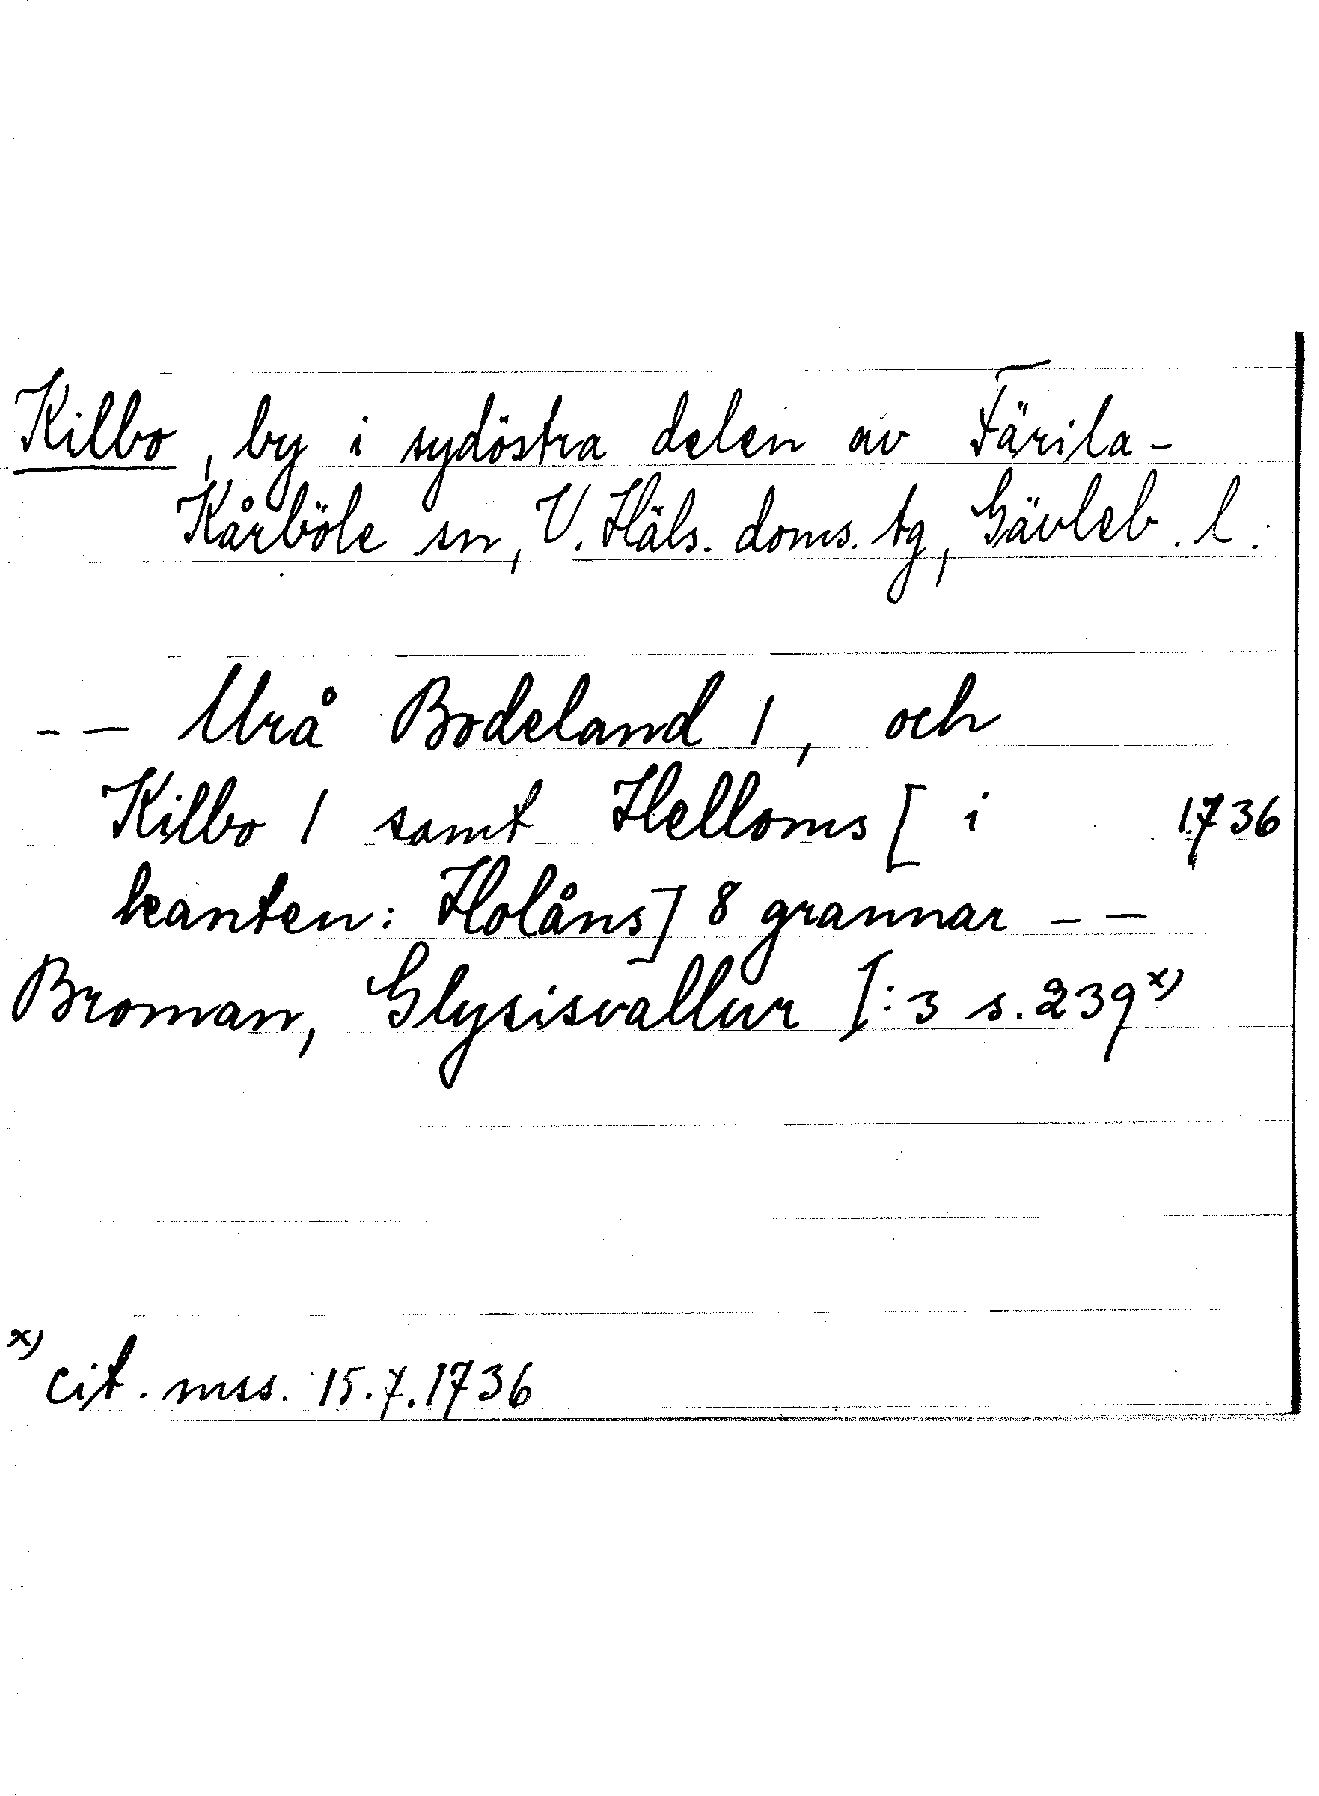 Kilbo, by i sydöstra delen av Färila-
Kårböle sn, V. Häls. doms. tg, Gävleb. l.
-- Urå Bodeland 1, och
Kilbo 1 samt Helloms [i 1736
kanten: Holåns] 8 grannar --
Broman, Glysisvallur I:3 s. 239 x)
x) cit. mss. 15.7.1736